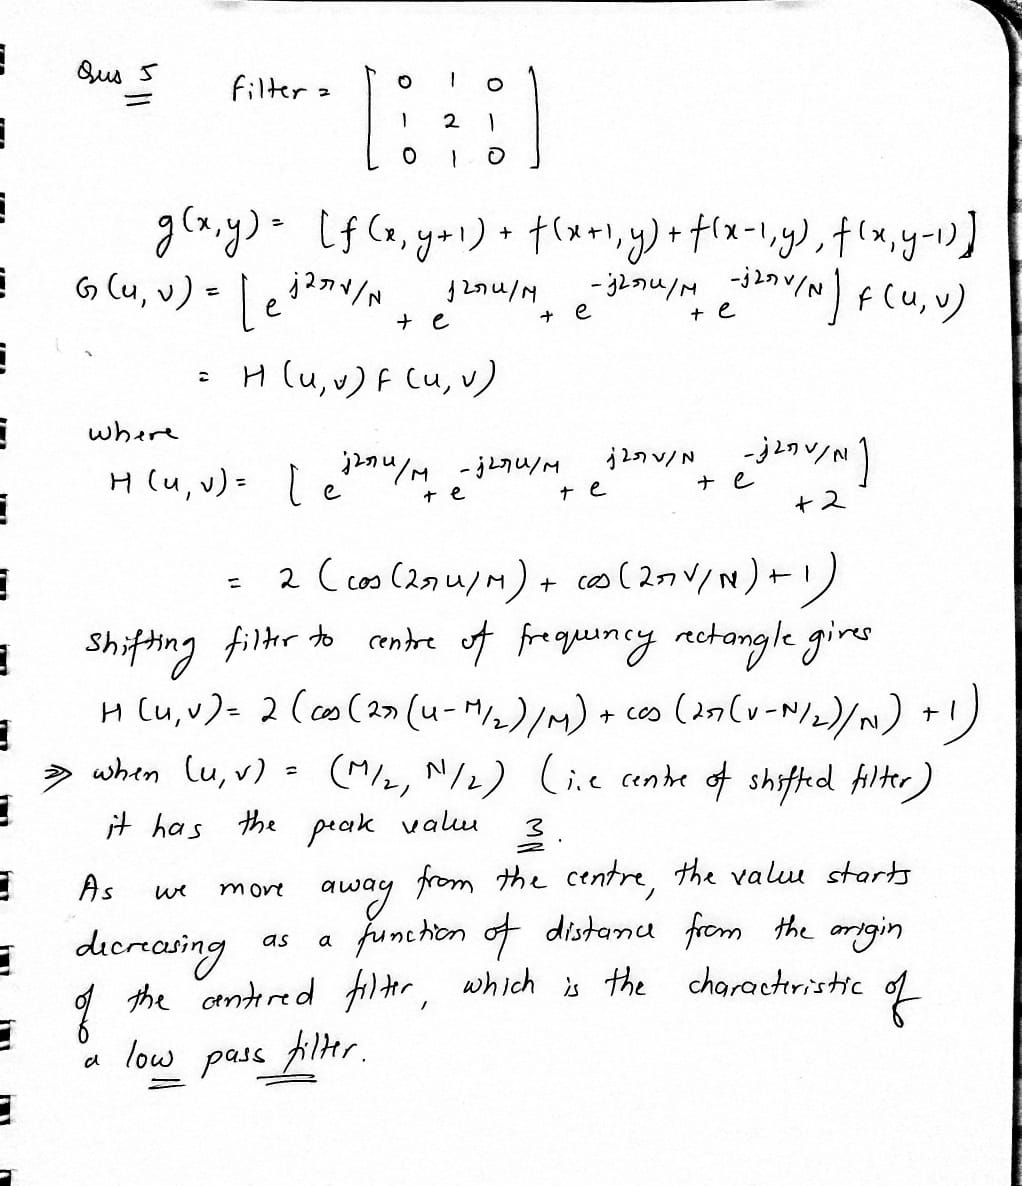 Qus 5
Filter = [ 0 1 0
1 2 1
0 1 0 ]
g(x,y) = [f(x,y+1) + f(x+1,y) + f(x-1,y), f(x,y-1)]
G(u,v) = [e^{j2πv/N} + e^{j2πu/M} + e^{-j2πu/M} + e^{-j2πv/N}] F(u,v)
= H(u,v) F(u,v)
where
H(u,v) = [e^{j2πu/M} + e^{-j2πu/M} + e^{j2πv/N} + e^{-j2πv/N}]
+ 2
= 2 (cos(2πu/M) + cos(2πv/N) + 1)
Shifting filter to centre of frequency rectangle gives
H(u,v) = 2 (cos(2π(u-M/2)/M) + cos(2π(v-N/2)/N) + 1)
⇒ when (u,v) = (M/2, N/2) (i.e centre of shifted filter)
it has the peak value 3.
As we more away from the centre, the value starts
decreasing as a function of distance from the origin
of the centered filter, which is the characteristic of
a low pass filter.